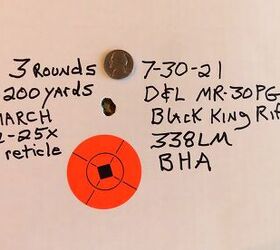 3 ROUNDS
200 YARDS
MARCH
-25X
reticle
7-30-21
D&L MR-30PG
BLACK KING Rif
338LM
BHA